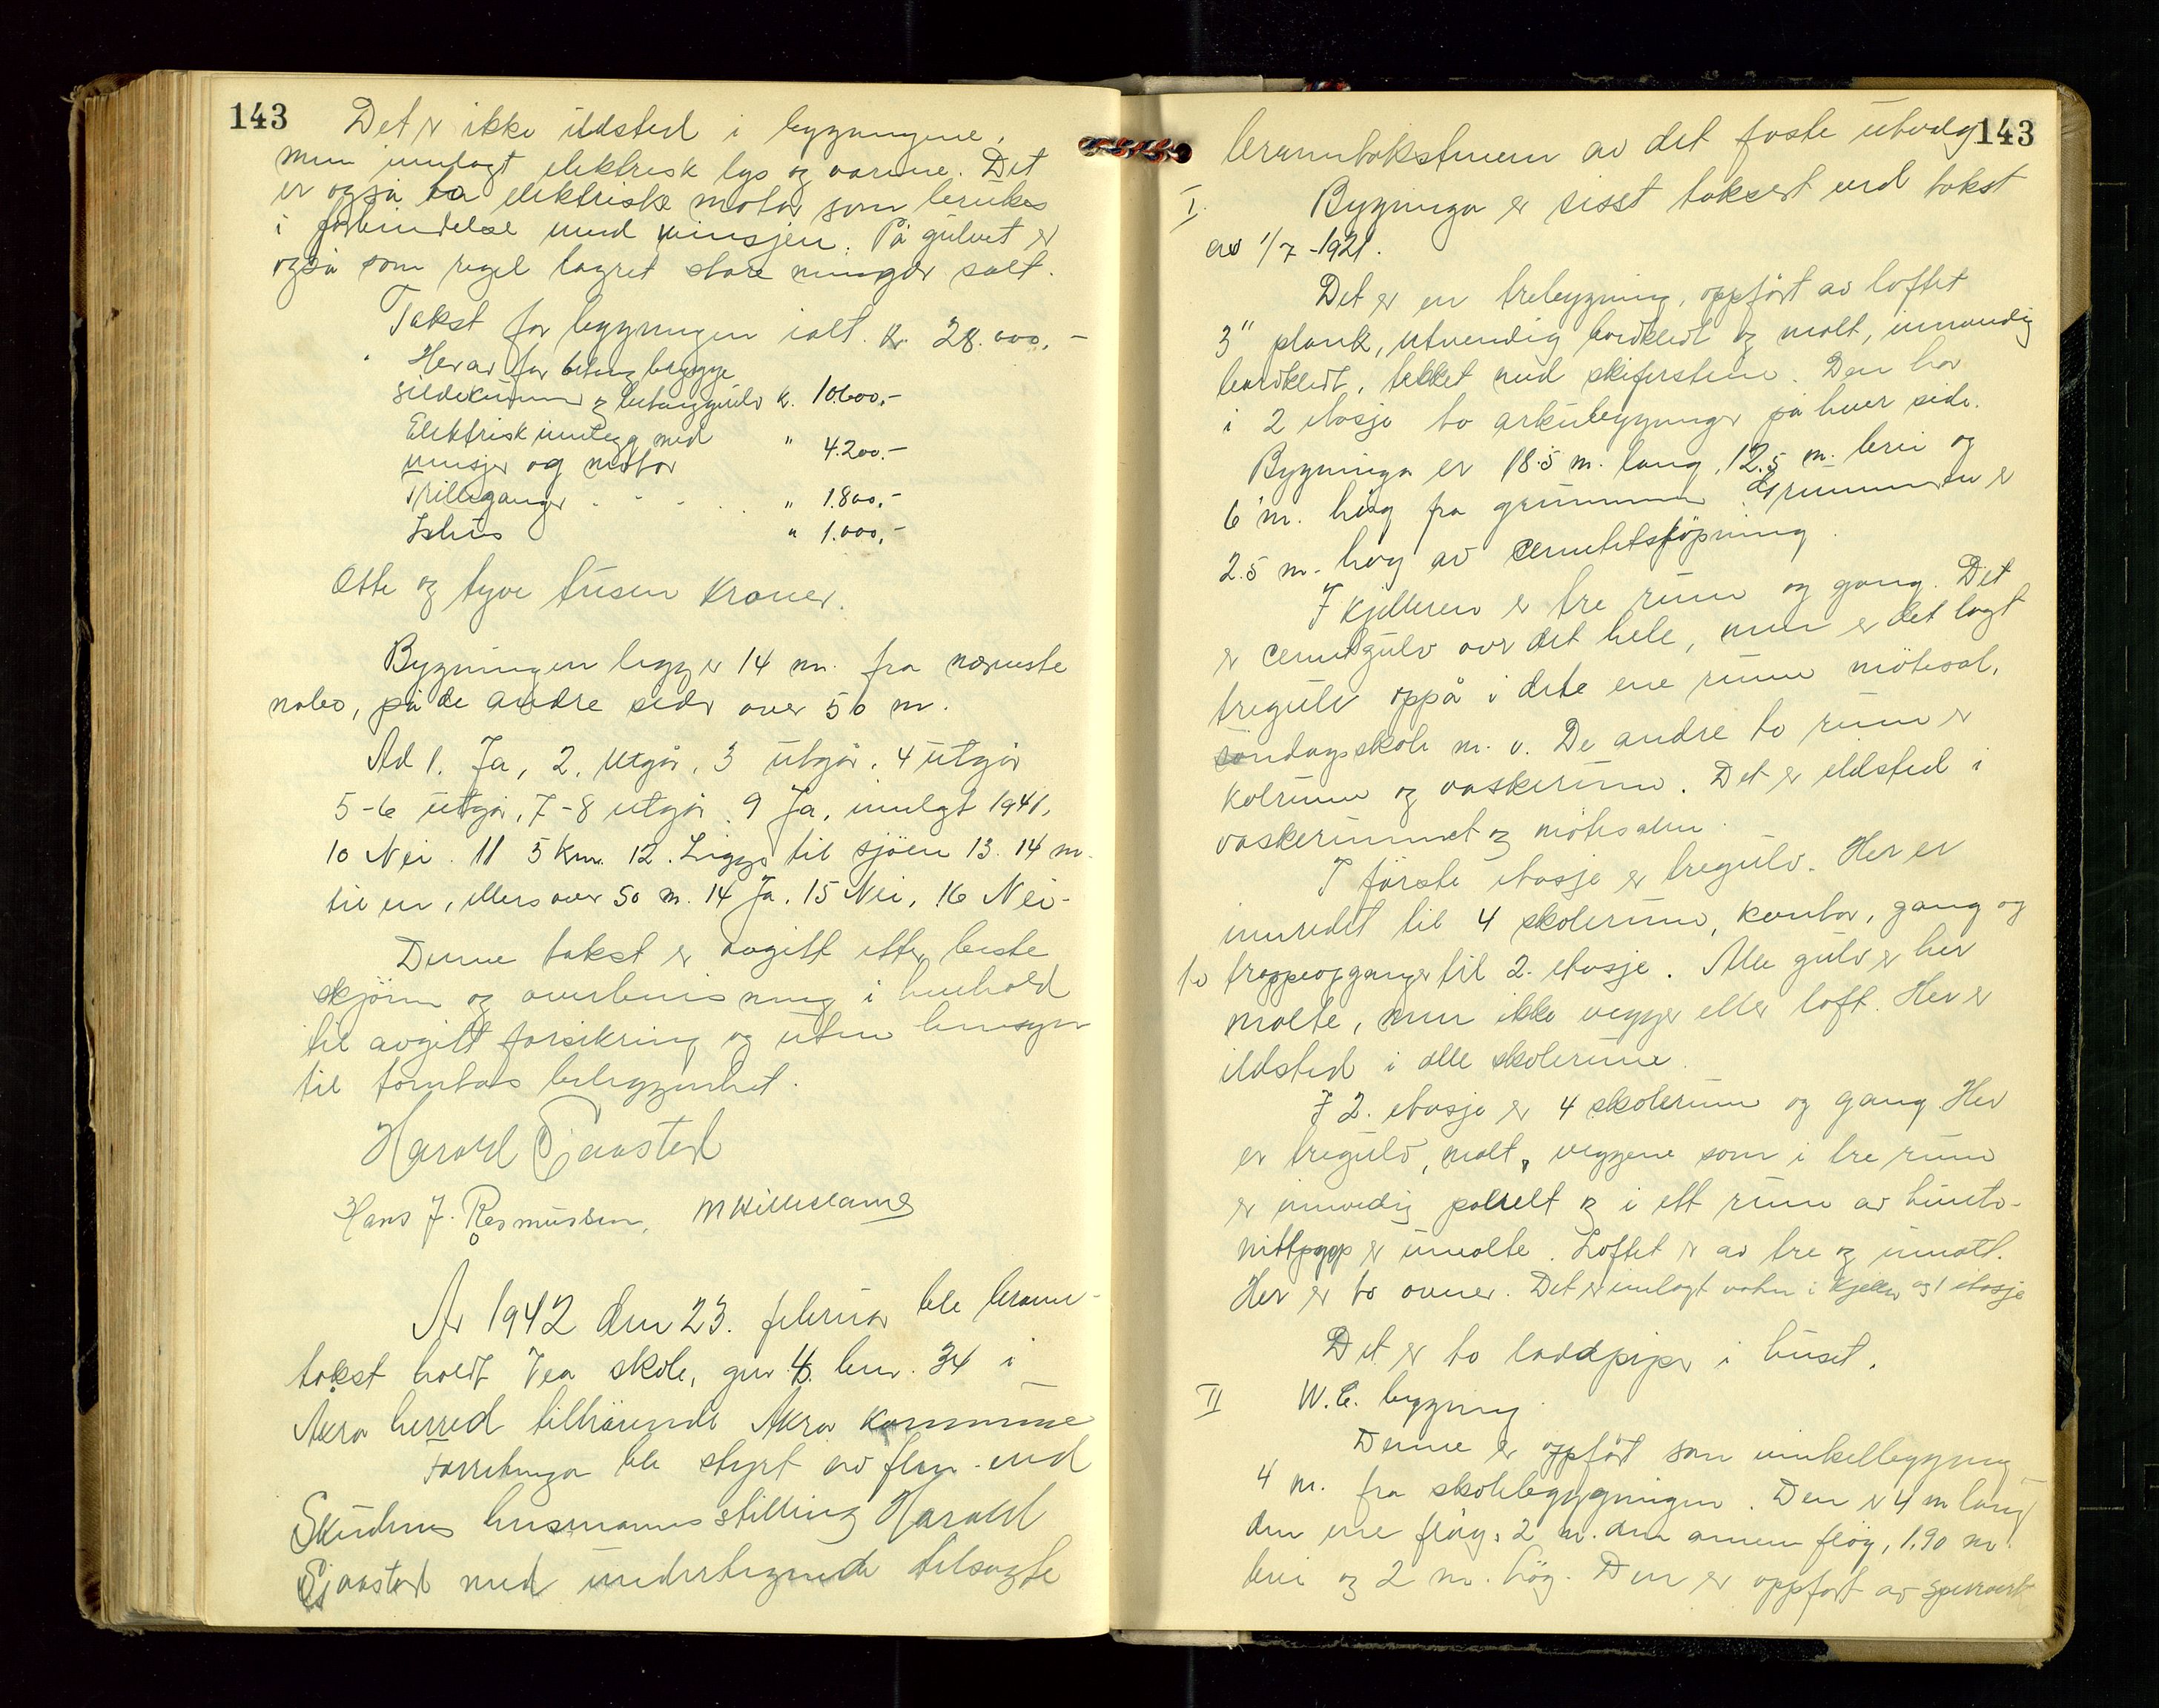 143
Det er ikke ildsted i bygningene,
men innlagt elektrisk lys og varme. Det
er også to elektriske motor som brukes
i forbindelse med vinsjen. På gulvet er
også som regel lagret store mengder salt.
Takst for bygningen ialt. kr. 28.000,-
Herav for betong brygge
sildekummer og betonggulv kr. 10.600,-
Elektrisk innlegg med
vinsjer og motor " 4.200,-
Trilleganger . - - . . " 1.800,-
Ishus " 1.000,-
Otte og tyve tusen kroner.
Bygningen ligger 14 m. fra nærmeste
nabo, på de andre sider over 50 m.
Ad 1. Ja, 2. utgår, 3 utgår, 4 utgår
5-6 utgår, 7-8 utgår 9 Ja, innlagt 1941,
10 Nei. 11 5 km. 12. Ligger til sjöen 13. 14 m.
til en, ellers over 50 m. 14 Ja. 15 Nei, 16 Nei-
Denne takst er avgitt etter beste
skjönn og overbevisning i henhold
til avgitt forsikring og uten hensyn
til tomtens beliggenhet.
Harald Sjaastad
Hans J. Rasmussen, M Hilleslann
År 1942 den 23. februar ble brann-
takst holdt Vea skole, gnr. 4. bnr. 34 i
Åkra herred tilhörende Åkra kommune
Forretninga ble styrt av flm. ved
Skudenes lensmannsstilling Harald
Sjaastad med undertegnede tilsagte
143
branntakstmenn av det faste utvalg
I. Bygninga er sisst taksert ved takst
av 1/7-1921.
Det er en trebygning, oppfört av loftet
3" plank, utvendig bordkledt og malt, innvendig
bordkledt, tekket med skifersteine. Den har
i 2 etasje to arkubygninger på hver side.
Bygninga er 18.5 m. lang, 12.5 m. brei og
6 m. hög fra grunnmur Grunnmuren er
2.5 m. hög av cementstöpning.
I kjelleren er tre rum og gang. Det
er cementgulv over det hele, men er det lagt
tregulv oppå i dete ene rumm mötesal,
söndagsskole m. v. De andre to rum er
kolrumm og vaskerumm. Det er ildsted i
vaskerummet og mötesalen.
I förste etasje er tregulv. Her er
innredet til 4 skolerumm, kontor, gang og
to trappeopganger til 2. etasje. Alle gulv er her
malte, men ikke vegger eller loft. Her er
ildsted i alle skolerume.
I 2. etasje er 4 skolerumm og gang Her
er tregulv, malt, veggene som i tre rumm
er innvedig panelt og i ett rumm av hunto-
nittpapp er umalte. Loftet er av tre og umalt.
Her er to ovner. Det er innlagt vatn i kjeller og 1 etasje
Det er to laddpiper i huset.
II W.C. bygning.
Denne er oppfört som vinkelbygging
4 m. fra skolebygygningen. Den er 4 m lang
den ene flöy, 2 m. den annen flöy, 1,90 m.
brei og 2 m. hög. Den er oppfört av sperreverk